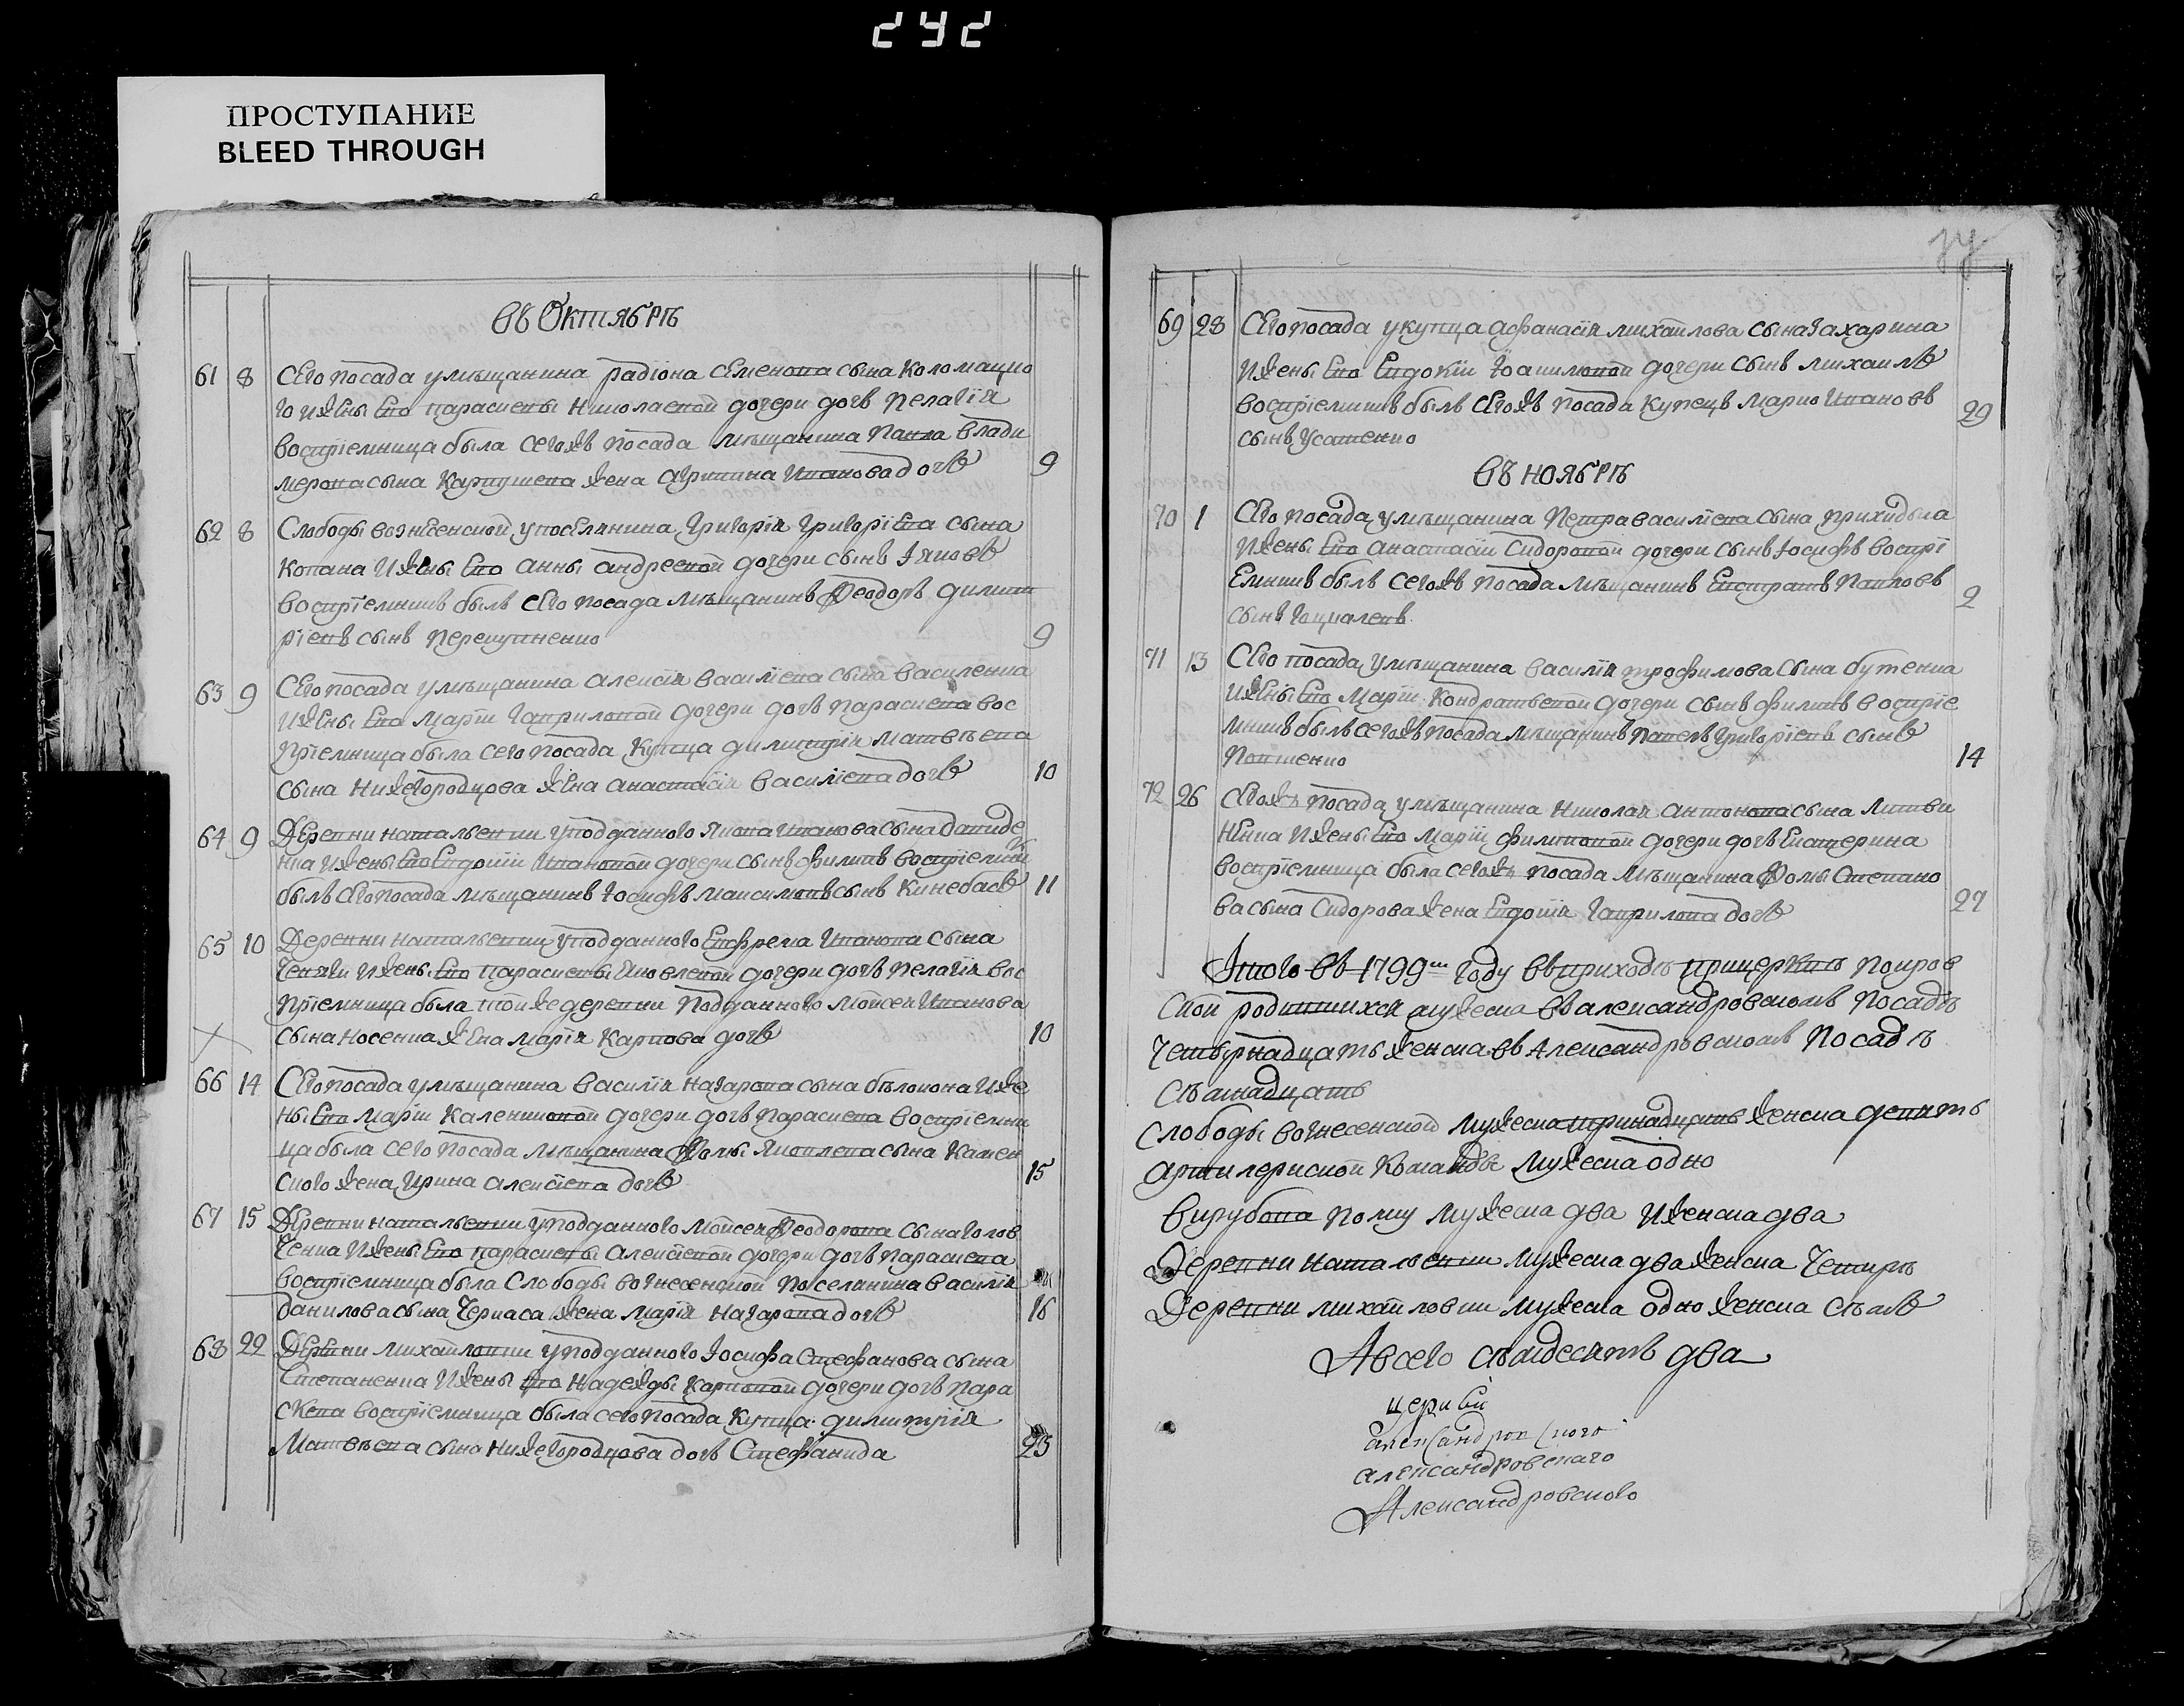 242
ПРОСТУПАНИЕ
BLEED THROUGH
въ Октябрѣ
61 8 Сего посада у мѣщанина радїона Семенова сына Коломацко
го и жены Его параскевы Николаевой дочери дочь Пелагїя
воспрїемница была сегожъ посада мѣщанина Павла Влади
мерова сына Карпушева жена Агрипина Иванова дочь 9
62 8 Слободы вознѣсенской у посѣлянина Григорїя Григорїева сына
Копана И жены Его Анны Андреевой дочери сынъ Іяковъ
воспрїемникъ былъ Сего посада мѣщанинъ Феодоръ димит
рїевъ сынъ Перекупненко 9
63 9 Сего посада у мѣщанина Алексїя Василїева сына Василенка
И жены Его Марїи Гавриловой дочери дочь Параскева вос
прїемница была сего посада Купца димитрїя Матвѣева
сына Нижегородцова жена Анастасїя Василїева дочь 10
64 9 Деревни натальевки у подданного Якова Иванова сына давиде
нка И жены Его Евдокїи Ивановой дочери сынъ филипъ воспрїемникъ
былъ Сего посада мѣщанинъ Іосифъ Максимовъ сынъ Кинебасъ 11
65 10 Деревни натальевки у подданного Евфрема Иванова сына
И жены Его Параскевы Яковлевой дочери дочь Пелагїя вос
прїемница была тойже деревни Подданного Мойсея Иванова
сына Носенка жена Марїя Карпова дочь 10
66 14 Сего посада у мѣщанина Василїя Назарова сына бѣлокона И же
ны Его Марїи Калениковой дочери дочь Параскева воспрїемни
ца была сего посада мѣщанина Фомы Яковлева сына Камен
ского жена Ирина Алексїева дочь 15
67 15 Деревни натальевки у подданного Мойсея Феодорова сына Голов
ченка И жены Его Параскевы Алексїевой дочери дочь Параскева
воспрїемница была Слободы вознесенской поселянина Василїя
данилова сына Черкаса жена Марїя Назарова дочь 16
68 22 Деревни Михайловки у подданного Іосифа Стефанова сына
Степаненка И жены Его Надежды Карповой дочери дочь Пара
скева воспрїемница была сего посада Купца димитрїя
Матвѣева сына Нижегородцова дочь Стефанида 23
69 28 Сего посада у купца Афанасїя Михайлова сына Захарина
И жены Его Евдокїи Іоакимовой дочери сынъ Михаилъ
воспрїемникъ былъ Сегожъ посада Купецъ Марко Ивановъ
сынъ Усатенко 29
въ ноябрѣ
70 1 Сего посада у мѣщанина Петра Василїева сына Приходька
И жены Его Анастасїи Сидоровой дочери сынъ Іосифъ воспрї
емникъ былъ сегожъ посада мѣщанинъ Евстратъ Павловъ
сынъ 2
71 13 Сего посада у мѣщанина Василїя трофимова сына бутенка
И жены Его Марїи Кондратьевой дочери сынъ филипъ воспрїе
мникъ былъ сегожъ посада мѣщанинъ Павелъ Григорїевъ сынъ
14
72 26 Сегожъ посада у мѣщанина Николая Антонова сына Литви
нѣнка И жены Его Марїи филиповой дочери дочь Екатерина
воспрїемница была сегожъ посада мѣщанина Фомы Степано
ва сына Сидорова жена Евдокїя Гаврилова дочь 27
Итого въ 1799м году въ приходѣ при церквѣ Покров
ской родившихся мужеска въ александровскомъ посадѣ
Четырнадцать женска въ Александровскомъ Посадѣ
сѣмнадцать
Слободы вознесенской мужеска тринадцать женска девять
Артилерийской Команды Мужеска одно
полку Мужеска два И женска два
Деревни натальевки мужеска два женска Четирѣ
Деревни михайловки мужеска одно женска сѣмъ
А всего сѣмдесятъ два
церкви
александровского
александровскаго
Александровского